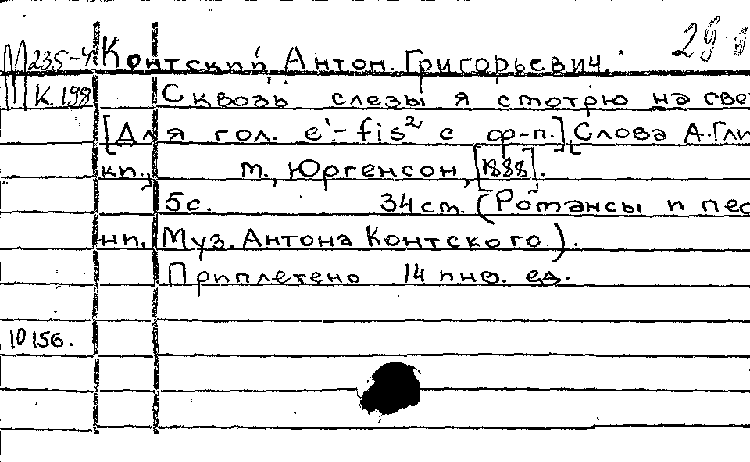 29
М 235-4 Контский, Антон Григорьевич.
К.198 Сквозь слезы я смотрю на све
[Для гол. e¹-fis² с ф-п.]. Слова А.Гли
кп., м., Юргенсон, [1888].
5с. 34см. (Романсы и пес
нп. Муз. Антона Контского).
Приплетено 14 инф. ед.
10156.